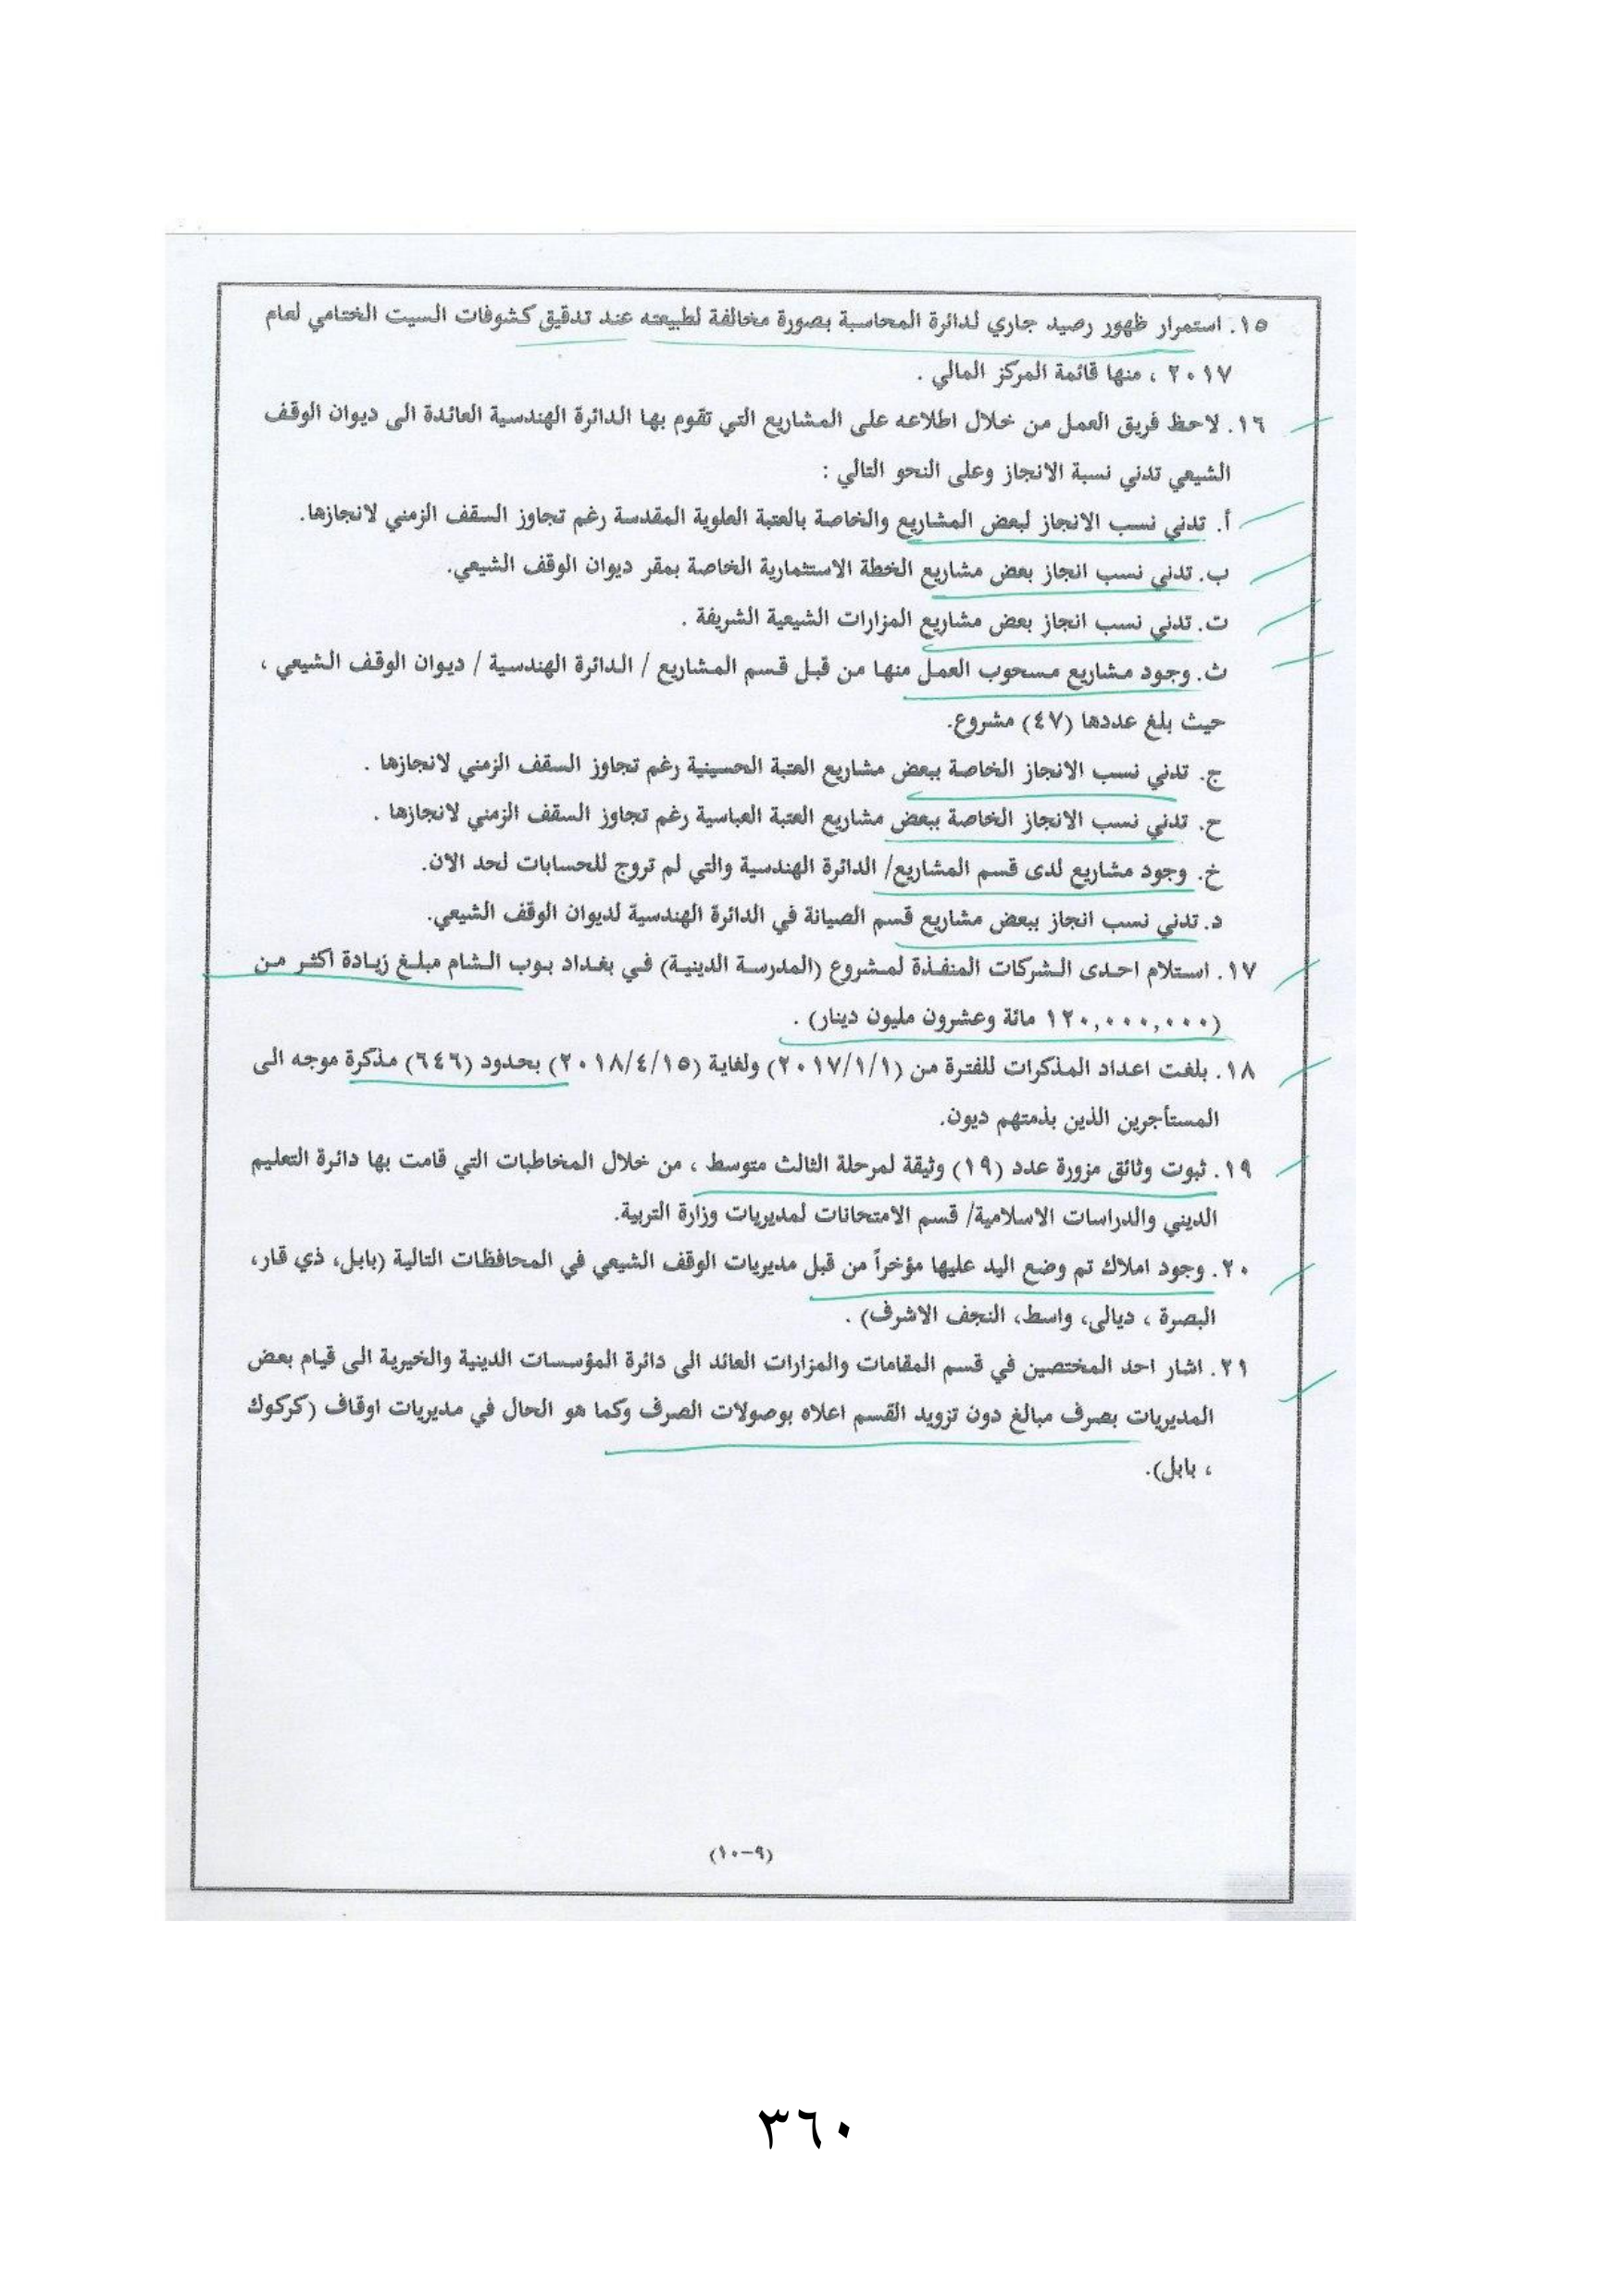 ١٥. استمرار ظهور رصيد جاري لدائرة المحاسبة بصورة مخالفة لطبيعته عند تدقيق كشوفات السيت الختامي لعام
٢٠١٧ ، منها قائمة المركز المالي .
١٦. لاحظ فريق العمل من خلال اطلاعه على المشاريع التي تقوم بها الدائرة الهندسية العائدة الى ديوان الوقف
الشيعي تدني نسبة الانجاز وعلى النحو التالي :
أ. تدني نسب الانجاز لبعض المشاريع والخاصة بالعتبة العلوية المقدسة رغم تجاوز السقف الزمني لانجازها.
ب. تدني نسب انجاز بعض مشاريع الخطة الاستثمارية الخاصة بمقر ديوان الوقف الشيعي.
ت. تدني نسب انجاز بعض مشاريع المزارات الشيعية الشريفة .
ث. وجود مشاريع مسحوب العمل منها من قبل قسم المشاريع / الدائرة الهندسية / ديوان الوقف الشيعي ،
حيث بلغ عددها (٤٧) مشروع.
ج. تدني نسب الانجاز الخاصة ببعض مشاريع العتبة الحسينية رغم تجاوز السقف الزمني لانجازها .
ح. تدني نسب الانجاز الخاصة ببعض مشاريع العتبة العباسية رغم تجاوز السقف الزمني لانجازها .
خ. وجود مشاريع لدى قسم المشاريع/ الدائرة الهندسية والتي لم تروج للحسابات لحد الان.
د. تدني نسب انجاز ببعض مشاريع قسم الصيانة في الدائرة الهندسية لديوان الوقف الشيعي.
١٧. استلام احدى الشركات المنفذة لمشروع (المدرسة الدينية) في بغداد بوب الشام مبلغ زيادة اكثر من
(١٢٠,٠٠٠,٠٠٠ مائة وعشرون مليون دينار) .
١٨. بلغت اعداد المذكرات للفترة من (٢٠١٧/١/١) ولغاية (٢٠١٨/٤/١٥) بحدود (٦٤٦) مذكرة موجه الى
المستأجرين الذين بذمتهم ديون.
١٩. ثبوت وثائق مزورة عدد (١٩) وثيقة لمرحلة الثالث متوسط ، من خلال المخاطبات التي قامت بها دائرة التعليم
الديني والدراسات الاسلامية/ قسم الامتحانات لمديريات وزارة التربية.
٢٠. وجود املاك تم وضع اليد عليها مؤخراً من قبل مديريات الوقف الشيعي في المحافظات التالية (بابل، ذي قار،
البصرة ، ديالى، واسط، النجف الاشرف) .
٢١. اشار احد المختصين في قسم المقامات والمزارات العائد الى دائرة المؤسسات الدينية والخيرية الى قيام بعض
المديريات بصرف مبالغ دون تزويد القسم اعلاه بوصولات الصرف وكما هو الحال في مديريات اوقاف (كركوك
، بابل).
(٩-١٠)
٣٦٠